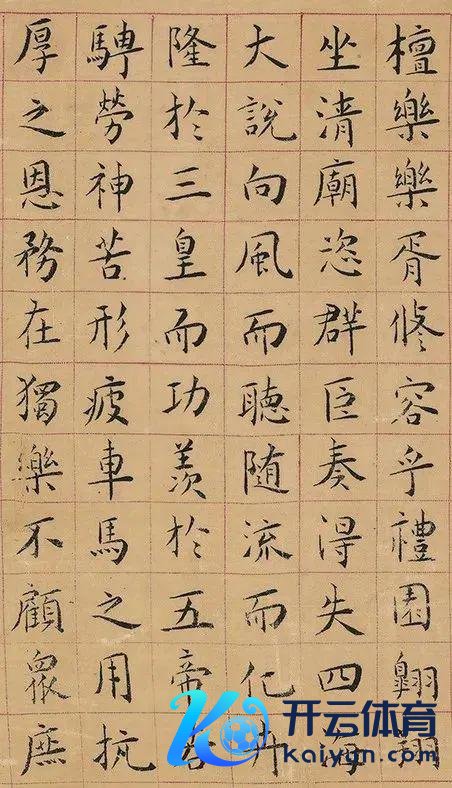 檀樂樂胥修容乎禮園翱翔
坐清廟恣群臣奏得失四海
大說向風而聽随流而化卉
隆於三皇而功羨於五帝
騁勞神苦形疲車馬之用抗
厚之恩務在獨樂不顧眾庶
开云体育
kaiyun.com